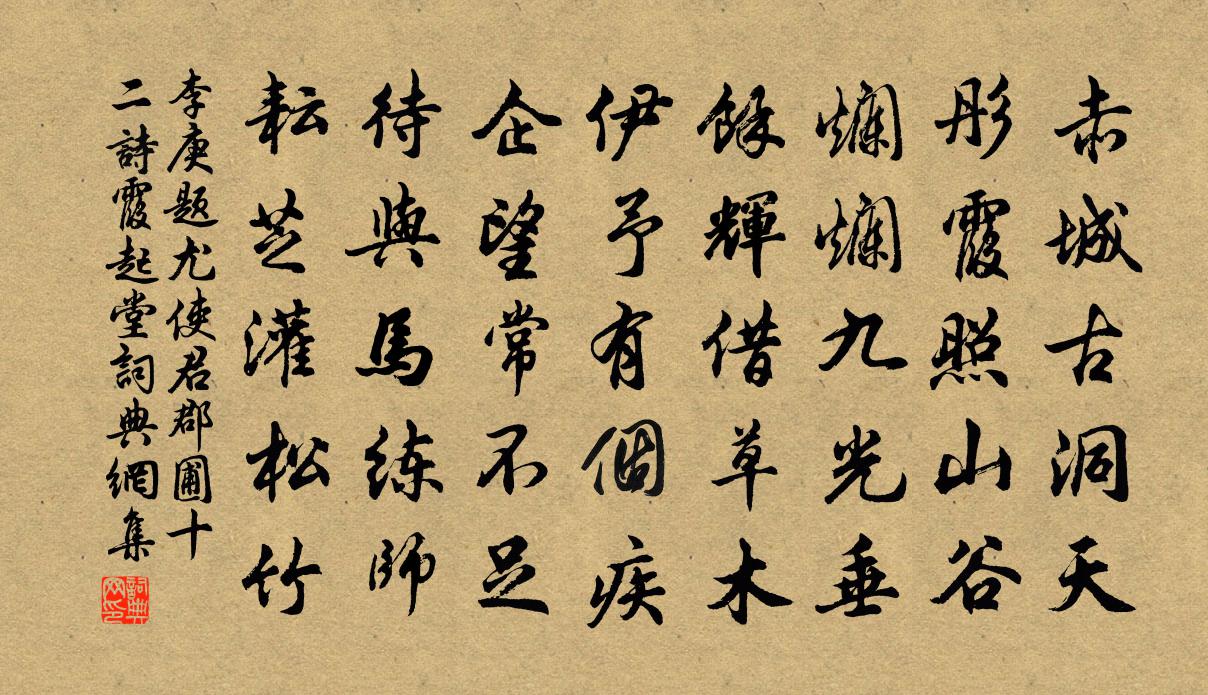 赤城古洞天
彤霞照山谷
爛爛九光垂
餘輝借草木
伊予有個疾
企望常不足
待與馬練師
耘芝灌松竹
李庚題尤使君郡圃十
二詩霞起堂詞典網集
詞典網印